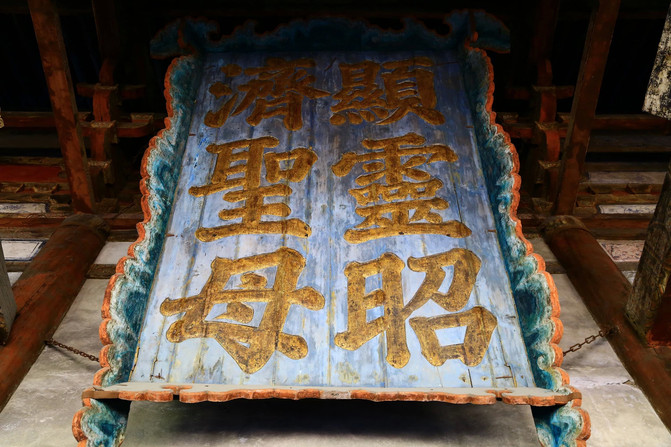 顯靈昭
濟聖母